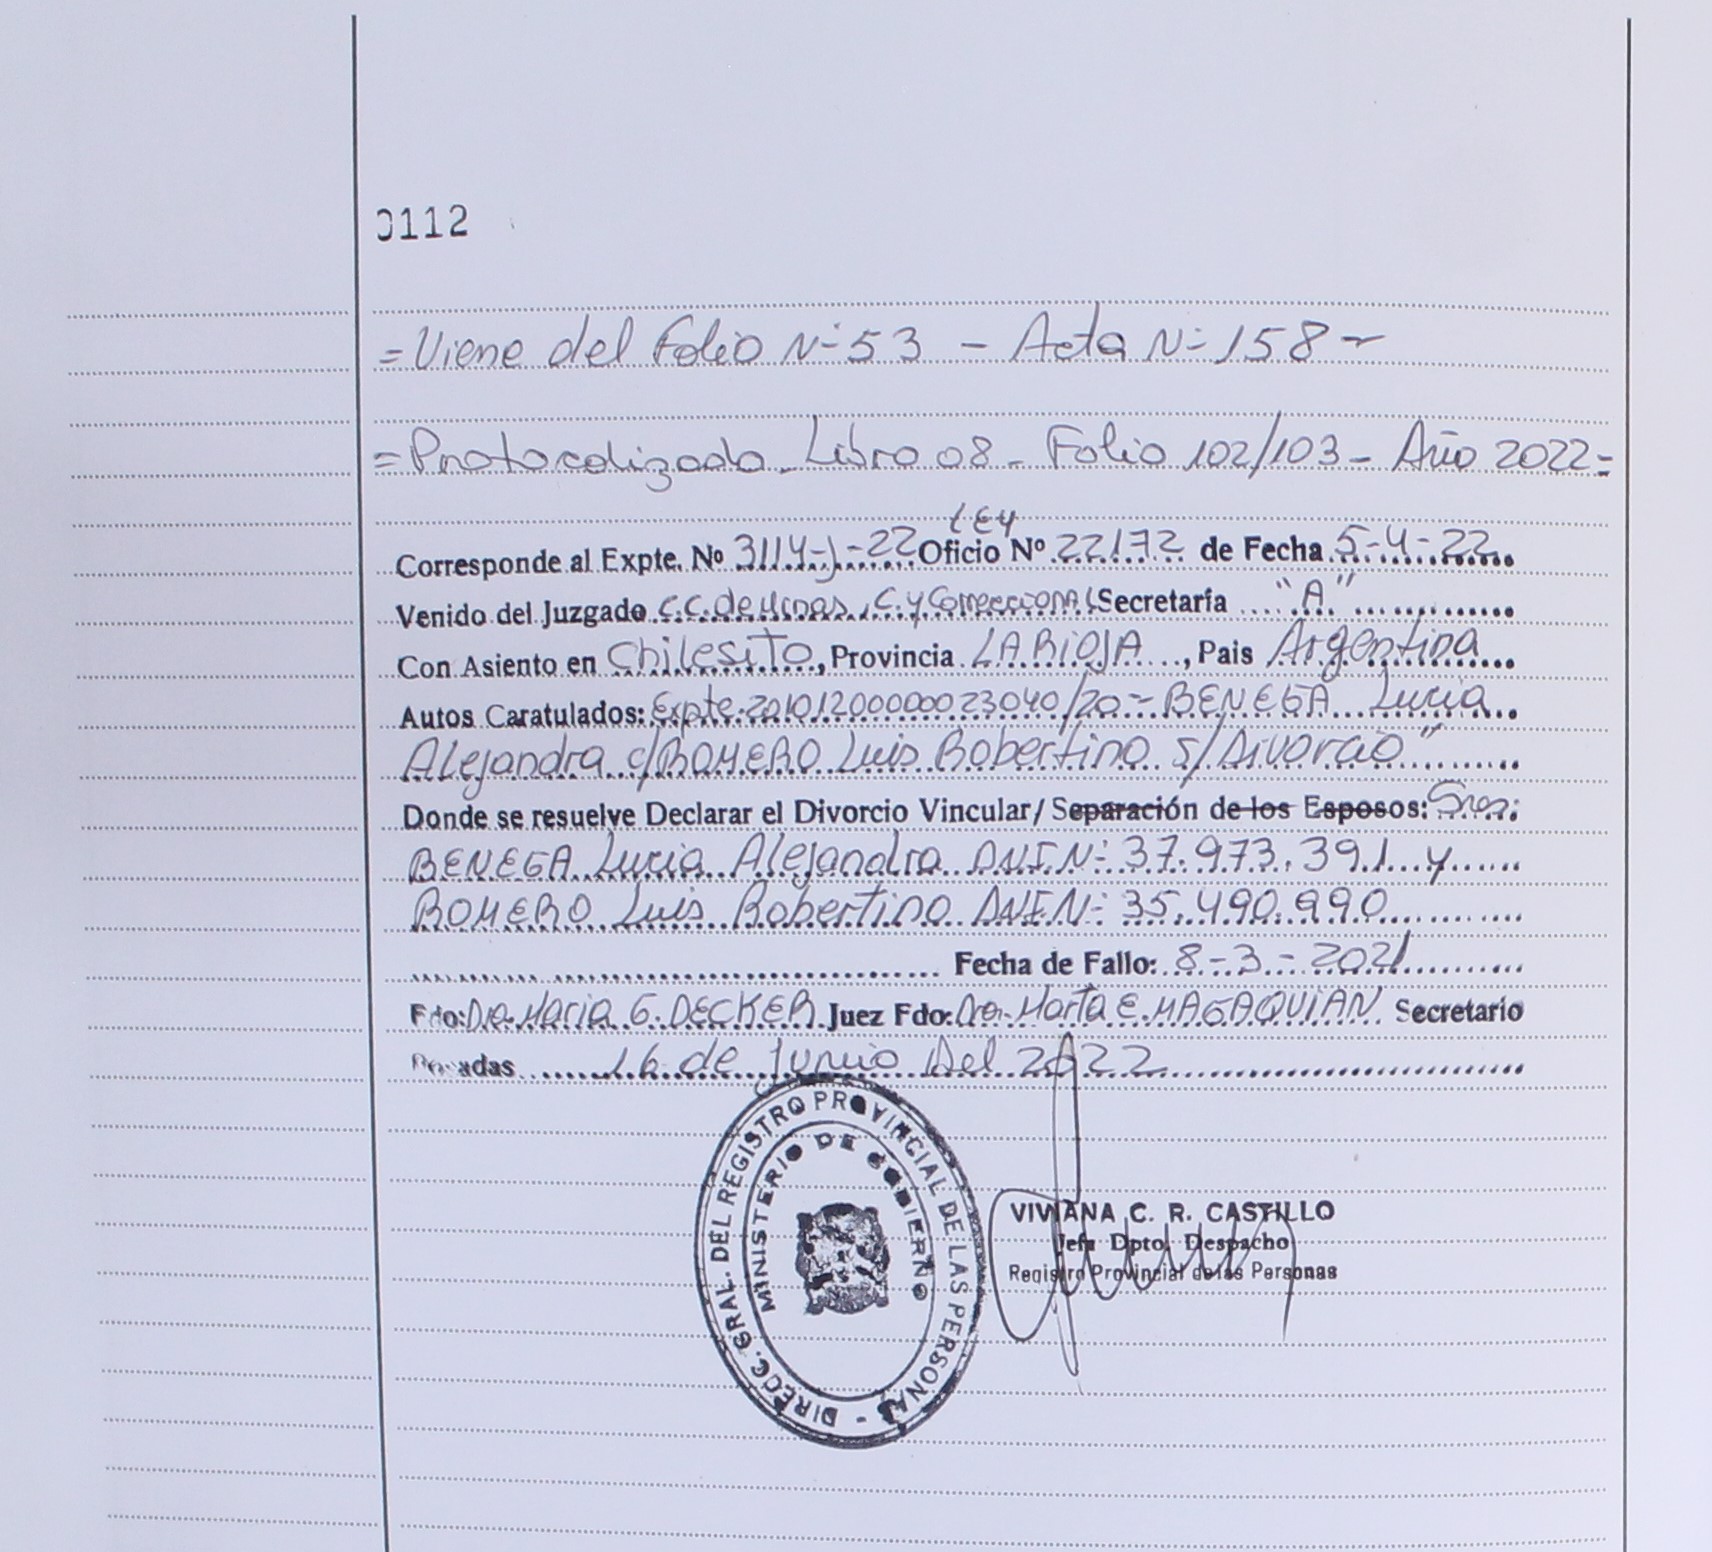 0112
= Viene del Folio Nº 53 - Acta Nº 158 -
= Protocolizado - Libro 08 - Folio 102/103 - Año 2022 =
LEY
Corresponde al Expte. Nº 3114-J-22 Oficio Nº 22172 de Fecha 5-4-22
Venido del Juzgado C.C. de Minas, C. y Correccional Secretaría "A"
Con Asiento en Chilesito, Provincia LA RIOJA, Pais Argentina
Autos Caratulados: Expte. 20101200000023040/20 - BENEGA Lucia
Alejandra c/ ROMERO Luis Robertino s/ Divorcio"
Donde se resuelve Declarar el Divorcio Vincular/ Separación de los Esposos: Sres:
BENEGA Lucia Alejandra DNI.Nº 37.973.391 y
ROMERO Luis Robertino DNI.Nº 35.490.990
Fecha de Fallo: 8-3-2021
Fdo: Dra. Maria G. DECKER Juez Fdo: Dra. Marta E. MAGAQUIAN Secretario
Posadas 16 de Junio del 2022
DIRECC. GRAL. DEL REGISTRO PROVINCIAL DE LAS PERSONAS -
MINISTERIO DE GOBIERNO
VIVIANA C. R. CASTILLO
Jefa Dpto. Despacho
Registro Provincial de las Personas